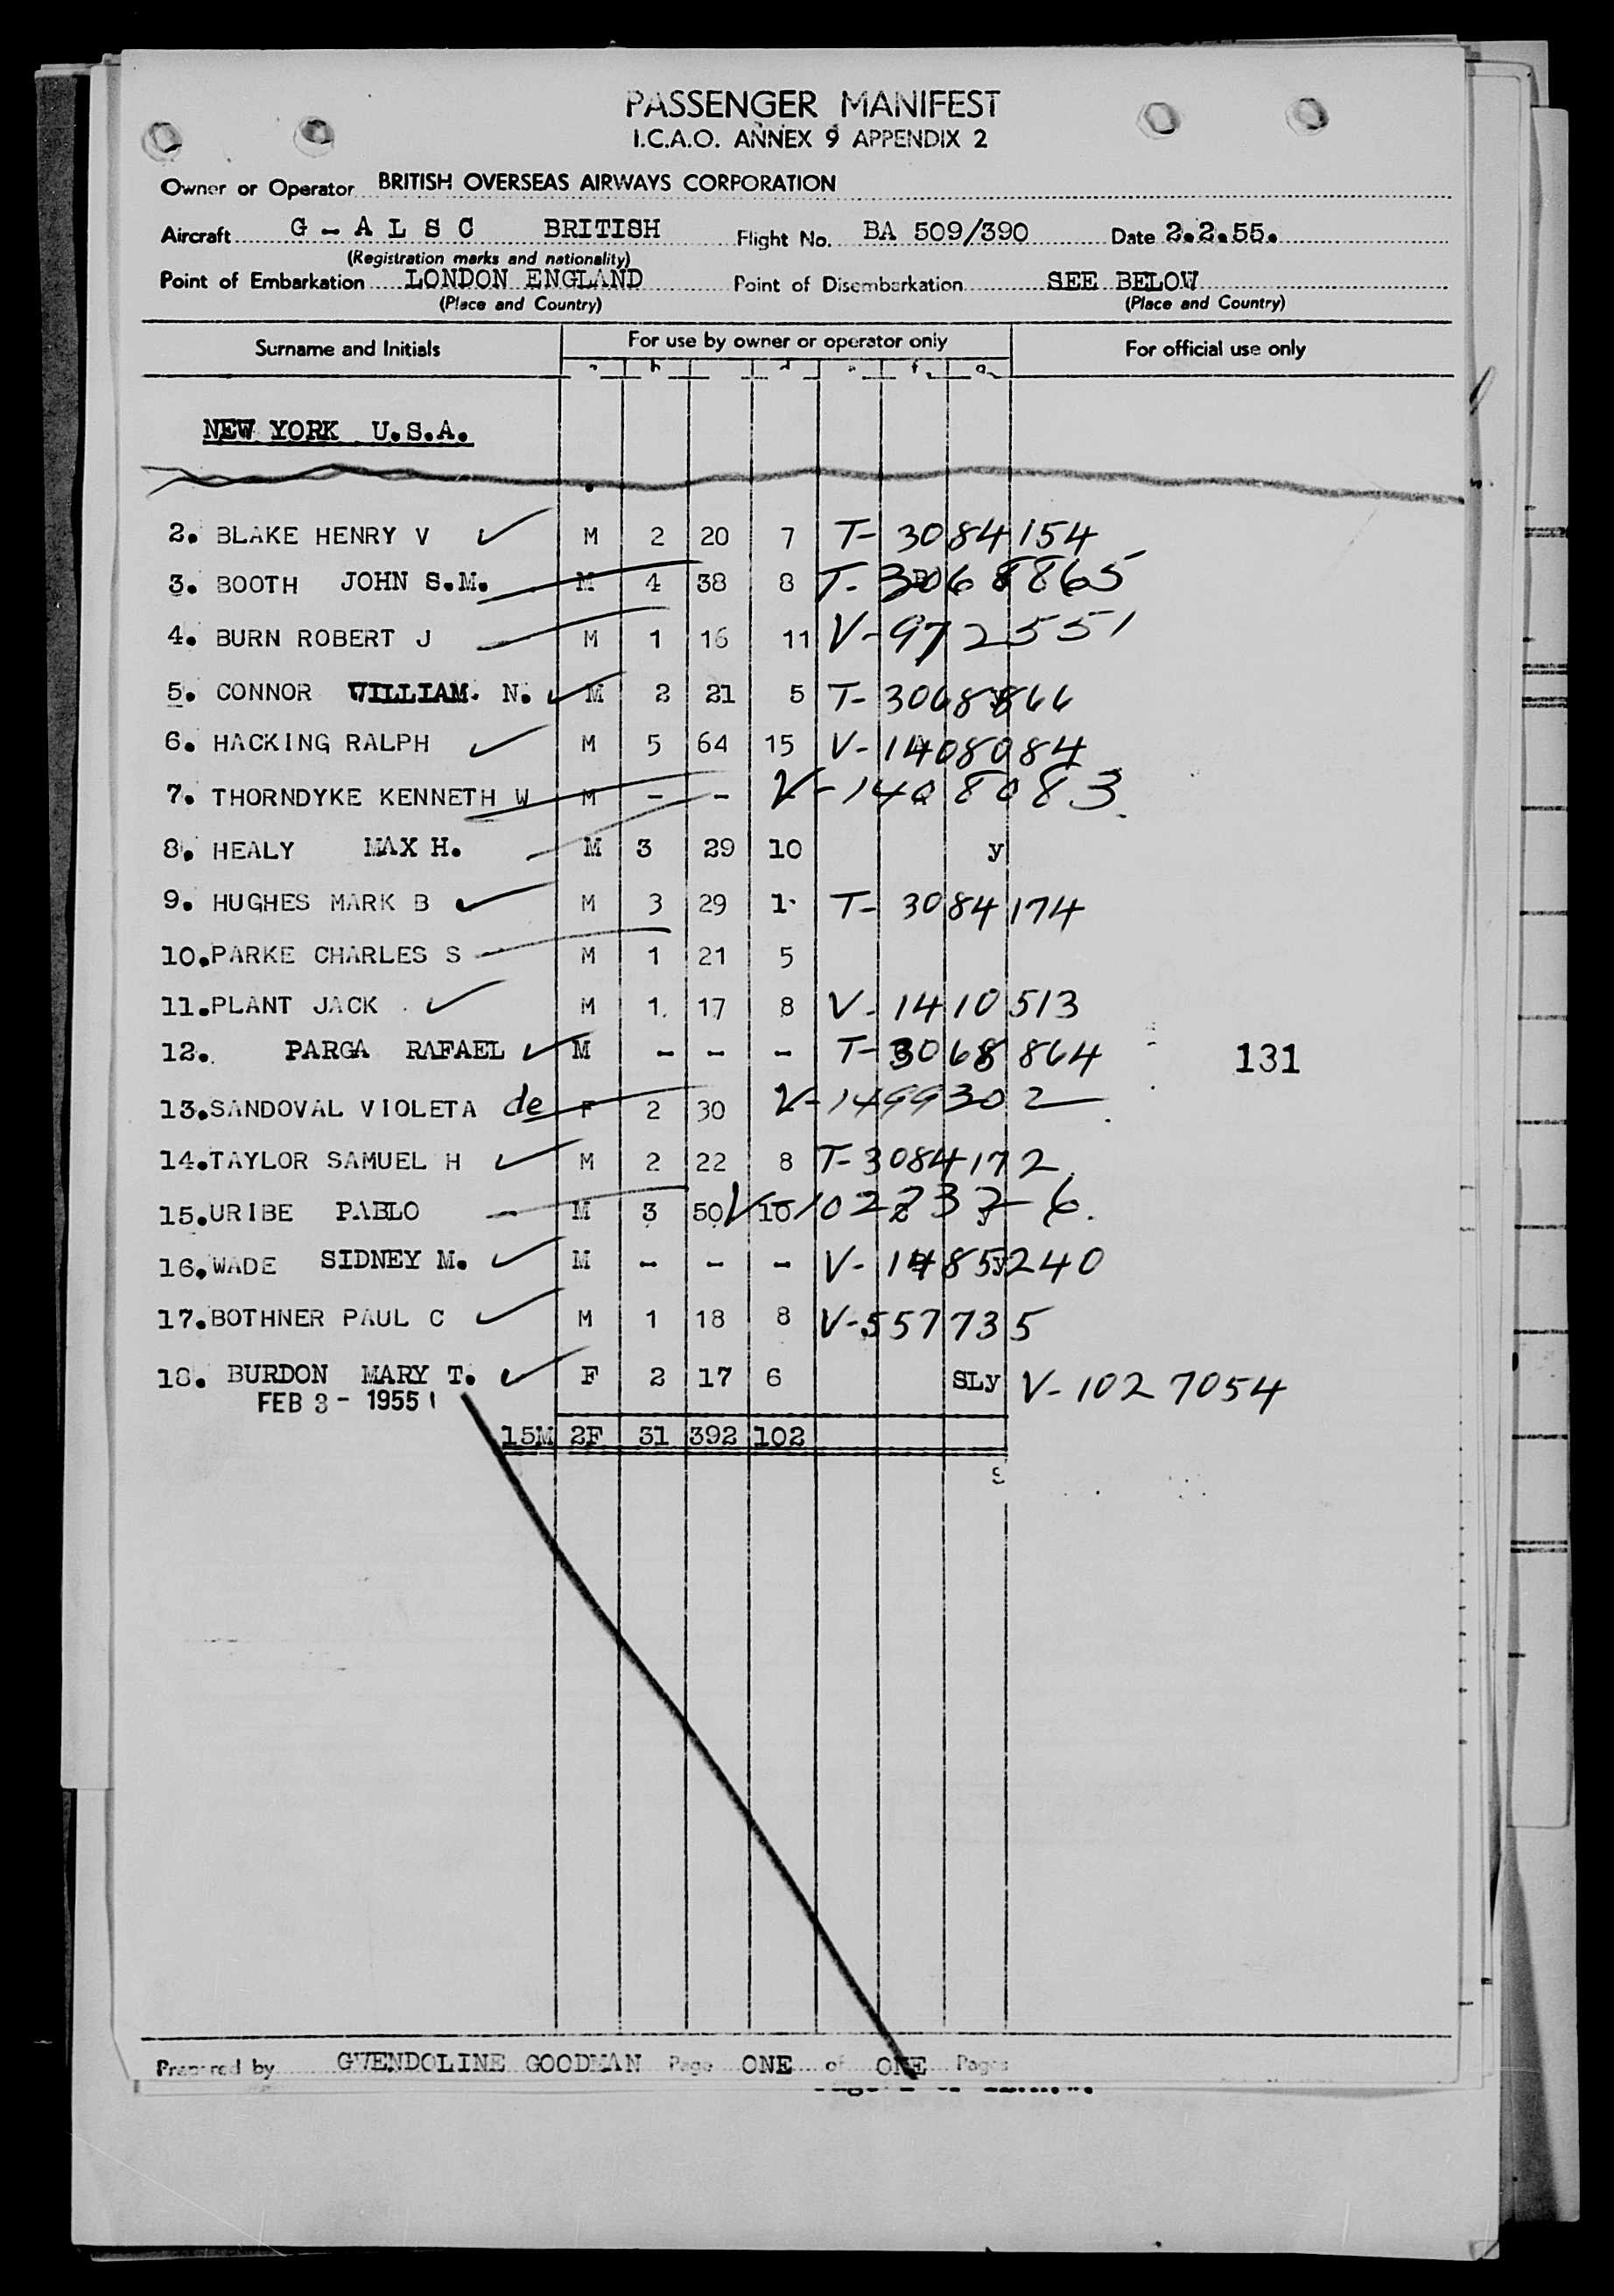 PASSENGER MANIFEST
I.C.A.O. ANNEX 9 APPENDIX 2
Owner or Operator BRITISH OVERSEAS AIRWAYS CORPORATION
Aircraft G - A L S C BRITISH Flight No. BA 509/390 Date 2.2.55.
(Registration marks and nationality)
Point of Embarkation LONDON ENGLAND Point of Disembarkation SEE BELOW
(Place and Country) (Place and Country)
Surname and Initials For use by owner or operator only For official use only
NEW YORK U.S.A.
2. BLAKE HENRY V M 2 20 7 T- 3084154
3. BOOTH JOHN S.M. M 4 38 8 T- 3068865
4. BURN ROBERT J M 1 16 11 V-972551
5. CONNOR WILLIAM. N. M 2 21 5 T- 3068866
6. HACKING RALPH M 5 64 15 V-1408084
7. THORNDYKE KENNETH W M - - V-1408083
8. HEALY MAX H. M 3 29 10 y
9. HUGHES MARK B M 3 29 1 T- 3084174
10.PARKE CHARLES S M 1 21 5
11.PLANT JACK M 1 17 8 V-1410513
12. PARGA RAFAEL M - - - T-3068864
13.SANDOVAL VIOLETA de F 2 30 V-1499302
14.TAYLOR SAMUEL H M 2 22 8 T-3084172
15.URIBE PABLO M 3 50 10 V-
16.WADE SIDNEY M. M - - - V-1485240
17.BOTHNER PAUL C M 1 18 8 V-557735
18. BURDON MARY T. F 2 17 6 SLy V-1027054
FEB 3 - 1955
15M 2F 31 392 102
131
Prepared by GWENDOLINE GOODMAN Page ONE of ONE Pages